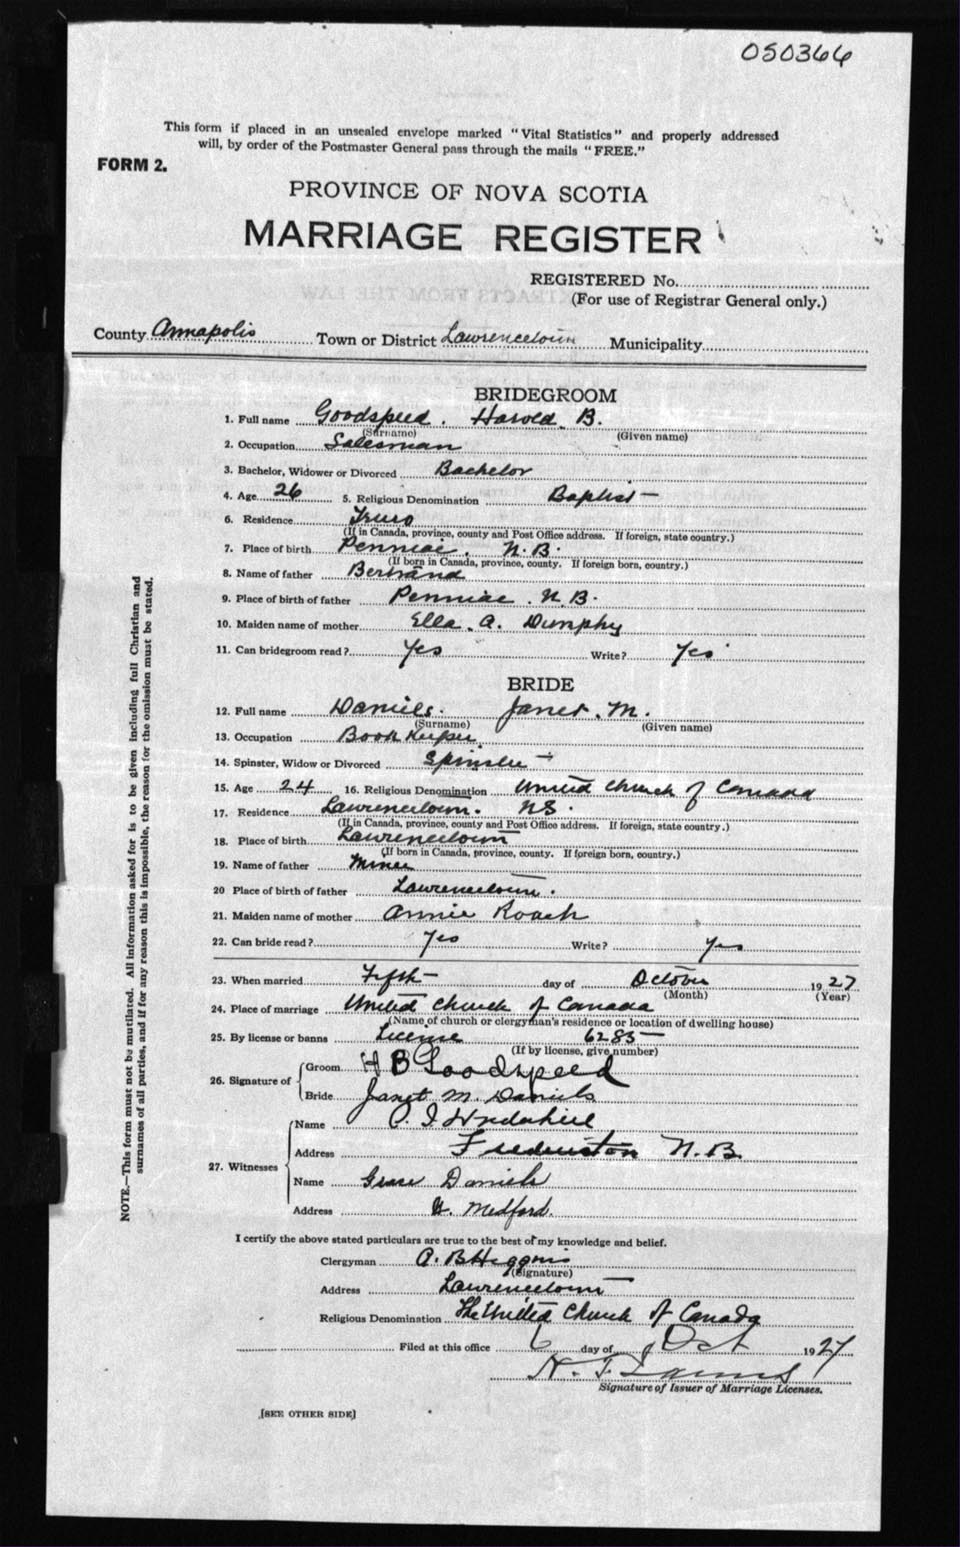 050366
This form if placed in an unsealed envelope marked "Vital Statistics" and properly addressed
will, by order of the Postmaster General pass through the mails "FREE."
FORM 2.
PROVINCE OF NOVA SCOTIA
MARRIAGE REGISTER
REGISTERED No.
(For use of Registrar General only.)
County Annapolis Town or District Lawrencetown Municipality
BRIDEGROOM
1. Full name Goodspeed. Harold B.
(Surname) (Given name)
2. Occupation Salesman
3. Bachelor, Widower or Divorced Bachelor
4. Age 26 5. Religious Denomination Baptist
6. Residence Truro
(If in Canada, province, county and Post Office address. If foreign, state country.)
7. Place of birth Penniac. N.B.
(If born in Canada, province, county. If foreign born, country.)
8. Name of father Bertrand
9. Place of birth of father Penniac. N.B.
10. Maiden name of mother Ella. A. Dunphy
11. Can bridegroom read? Yes Write? Yes
BRIDE
12. Full name Daniels. Janet. M.
(Surname) (Given name)
13. Occupation Book Keeper
14. Spinster, Widow or Divorced Spinster
15. Age 24 16. Religious Denomination United Church of Canada
17. Residence Lawrencetown. NS.
(If in Canada, province, county and Post Office address. If foreign, state country.)
18. Place of birth Lawrencetown
(If born in Canada, province, county. If foreign born, country.)
19. Name of father
20 Place of birth of father Lawrencetown.
21. Maiden name of mother Annie Roach
22. Can bride read? Yes Write? Yes
23. When married Fifth day of October 1927
(Month) (Year)
24. Place of marriage United Church of Canada
(Name of church or clergyman's residence or location of dwelling house)
25. By license or banns License 6285
(If by license, give number)
26. Signature of Groom H B Goodspeed
Bride Janet M. Daniels
27. Witnesses Name
Address Fredericton N.B.
Name Grace Daniels
Address W. Medford.
I certify the above stated particulars are true to the best of my knowledge and belief.
Clergyman A. B Higgins
(Signature)
Address Lawrencetown
Religious Denomination The United Church of Canada
Filed at this office 6 day of Oct 1927
Signature of Issuer of Marriage Licenses.
[SEE OTHER SIDE]
NOTE.—This form must not be mutilated. All information asked for is to be given including full Christian and
surnames of all parties, and if for any reason this is impossible, the reason for the omission must be stated.